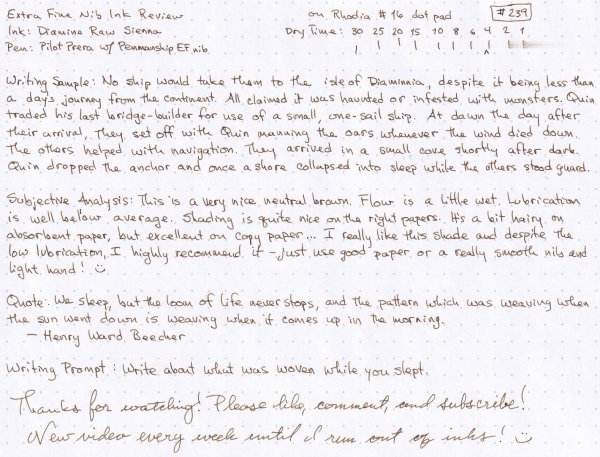 Extra Fine Nib Ink Review on Rhodia #16 dot pad #239
Ink: Diamine Raw Sienna Dry Time: 30 25 20 15 10 8 6 4 2 1
Pen: Pilot Prera w/ Penmanship EF nib
Writing Sample: No ship would take them to the isle of Diaminnia, despite it being less than
a day's journey from the continent. All claimed it was haunted or infested with monsters. Quin
traded his last bridge-builder for use of a small, one-sail ship. At dawn the day after
their arrival, they set off with Quin manning the oars whenever the wind died down.
The others helped with navigation. They arrived in a small cove shortly after dark.
Quin dropped the anchor and once ashore, collapsed into sleep while the others stood guard.
Subjective Analysis: This is a very nice neutral brown. Flow is a little wet. Lubrication
is well below average. Shading is quite nice on the right papers. It's a bit hairy on
absorbent paper, but excellent on copy paper... I really like this shade and despite the
low lubrication, I highly recommend it - just use good paper or a really smooth nib and
light hand! :)
Quote: We sleep, but the loom of life never stops, and the pattern which was weaving when
the sun went down is weaving when it comes up in the morning.
- Henry Ward Beecher
Writing Prompt: Write about what was woven while you slept.
Thanks for watching! Please like, comment, and subscribe!
New video every week until I run out of inks! :)